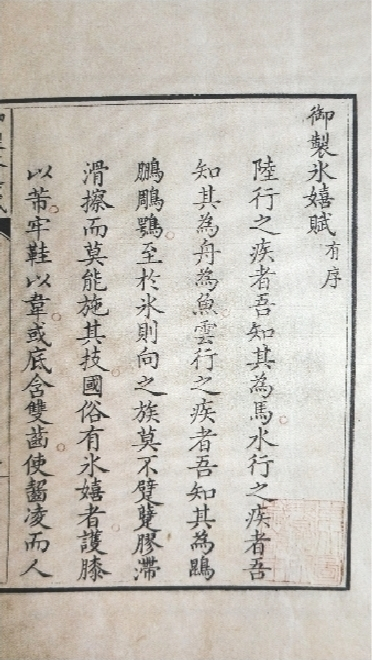 御製氷嬉賦有序
陸行之疾者吾知其為馬水行之疾者吾
知其為舟為魚雲行之疾者吾知其為鵾
鵬鵰鶚至於氷則向之族莫不躄躠膠滯
滑擦而莫能施其技國俗有氷嬉者護膝
以芾牢鞋以韋或底含雙齒使齧凌而人